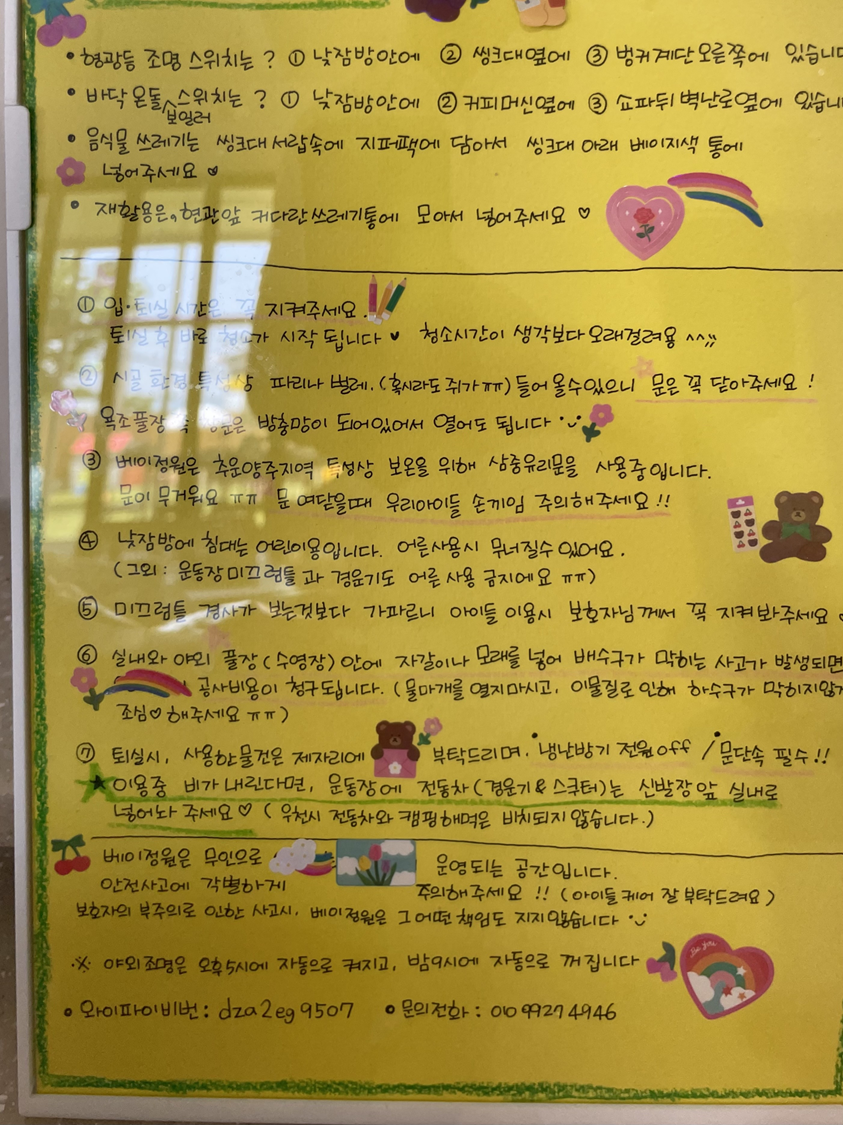 • 형광등 조명 스위치는 ? ① 낮잠방안에 ② 씽크대옆에 ③ 벙커계단오른쪽에 있습니다
• 바닥 온돌 보일러 스위치는 ? ① 낮잠방안에 ② 커피머신옆에 ③ 쇼파뒤 벽난로옆에 있습니
• 음식물 쓰레기는 씽크대서랍속에 지퍼팩에 담아서 씽크대 아래 베이지색 통에
넣어주세요 ♡
• 재활용은, 현관앞 커다란쓰레기통에 모아서 넣어주세요 ♡
① 입·퇴실 시간은 꼭 지켜주세요.
퇴실 후 바로 청소가 시작 됩니다 ♥ 청소시간이 생각보다 오래걸려용 ^^;;
② 시골 환경 특성상 파리나 벌레. (혹시라도 쥐가 ㅠㅠ) 들어 올수있으니 문은 꼭 닫아주세요 !
욕조풀장 쪽 방충망이 되어있어서 열어도 됩니다
③ 베이정원은 추운양주지역 특성상 보온을 위해 삼중유리문을 사용중입니다.
문이 무거워요 ㅠㅠ 문 여닫을때 우리아이들 손끼임 주의해주세요 !!
④ 낮잠방에 침대는 어린이용입니다. 어른사용시 무너질수 있어요.
(그외 : 운동장미끄럼틀 과 경운기도 어른 사용 금지에요 ㅠㅠ)
⑤ 미끄럼틀 경사가 보는것보다 가파르니 아이들 이용시 보호자님께서 꼭 지켜봐주세요
⑥ 실내와 야외 풀장 (수영장) 안에 자갈이나 모래를 넣어 배수구가 막히는 사고가 발생되면
공사비용이 청구됩니다. (물마개를 열지마시고, 이물질로 인해 하수구가 막히지않게
조심♡해주세요 ㅠㅠ)
⑦ 퇴실시, 사용한물건은 제자리에 부탁드리며, 냉난방기 전원off / 문단속 필수!!
★ 이용중 비가 내린다면, 운동장에 전동차 (경운기 & 스쿠터)는 신발장앞 실내로
넣어놔 주세요♡ ( 우천시 전동차와 캠핑해먹은 비치되지 않습니다.)
베이정원은 무인으로 운영되는 공간입니다.
안전사고에 각별하게 주의해주세요 !! (아이들케어 잘 부탁드려요)
보호자의 부주의로 인한 사고시, 베이정원은 그 어떤 책임도 지지않습니다
※ 야외조명은 오후5시에 자동으로 켜지고, 밤9시에 자동으로 꺼집니다
• 와이파이비번 : dza2eg9507 • 문의전화 : 010 9927 4946